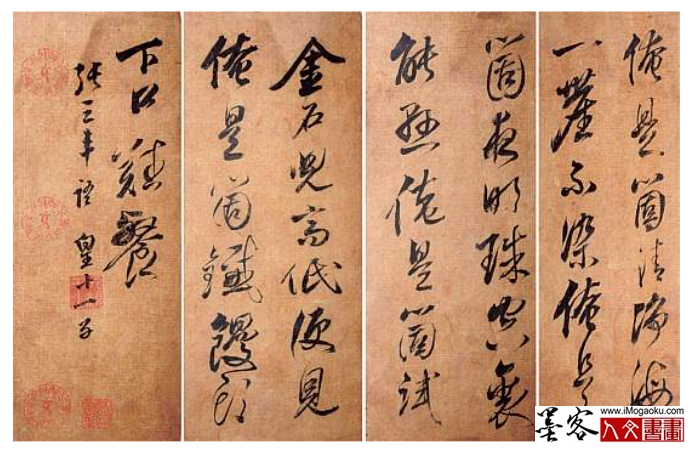 俺是箇清海
一塵不染俺是
箇夜明珠空裏
能懸俺是箇試
金石兒高低便見
俺是箇鐵饅頭
下口難餐
張三丰語 皇十一子
墨客
www.iMogaoku.com
人文書畫